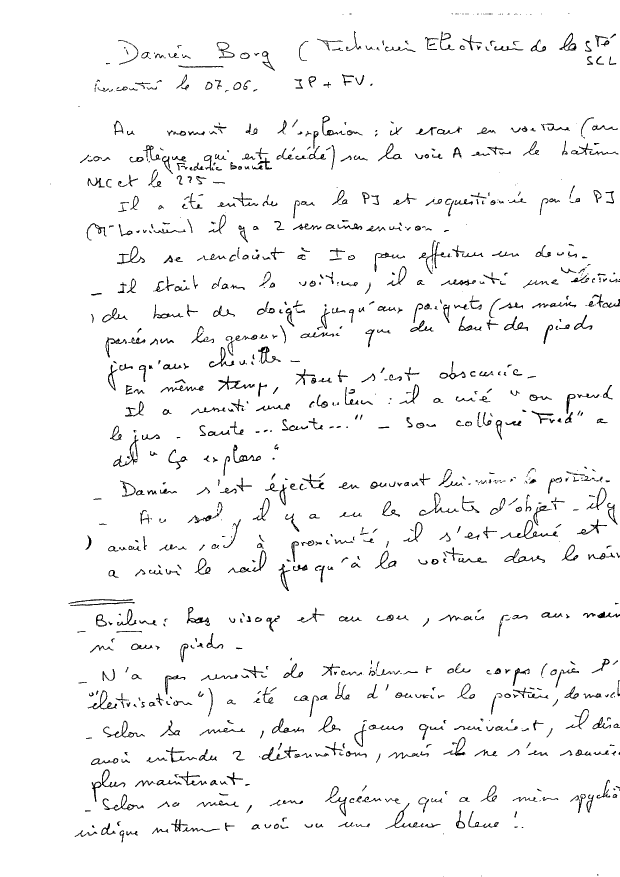 - Damien Borg (Technicien Electricien de la Sté
SCL
Rencontré le 07.06. IP + FV.
Au moment de l'explosion : il etait en voiture (avec
son collègue qui est décédé) sur la voie A entre le batim
Frederic Bonnet
N1C et le 225 -
Il a été entendu par la PJ et requestionné par la PJ
il y a 2 semaines environ -
Ils se rendaient à Io pour effectuer un devis -
- Il était dans la voiture, il a ressenti une "électris
du bout des doigts jusqu'aux poignets (ses mains étai
posées sur les genoux) ainsi que du bout des pieds
jusqu'aux cheville -
En même temp, tout s'est obscurcie -
Il a ressenti une douleur : il a crié "on prend
le jus - Saute ... Saute ..." - Son collègue "Fred" a
dit "Ça explose."
- Damien s'est éjecté en ouvrant lui-même la portière -
- Au sol, il y a eu les chutes d'objet - il y
avait un rail à proximité, il s'est relevé et
a suivi le rail jusqu'à la voiture dans le noir
- Brûlure : visage et au cou, mais pas aux main
ni aux pieds -
- N'a pas ressenti de tremblement du corps (après l'
"électrisation") a été capable d'ouvrir la portière, de march
- Selon sa mère, dans les jours qui suivaient, il disa
avoir entendu 2 détonnations, mais il ne s'en souvie
plus maintenant -
- Selon sa mère, une lycéenne, qui a le même spychó
indique nettement avoir vu une lueur bleue !.